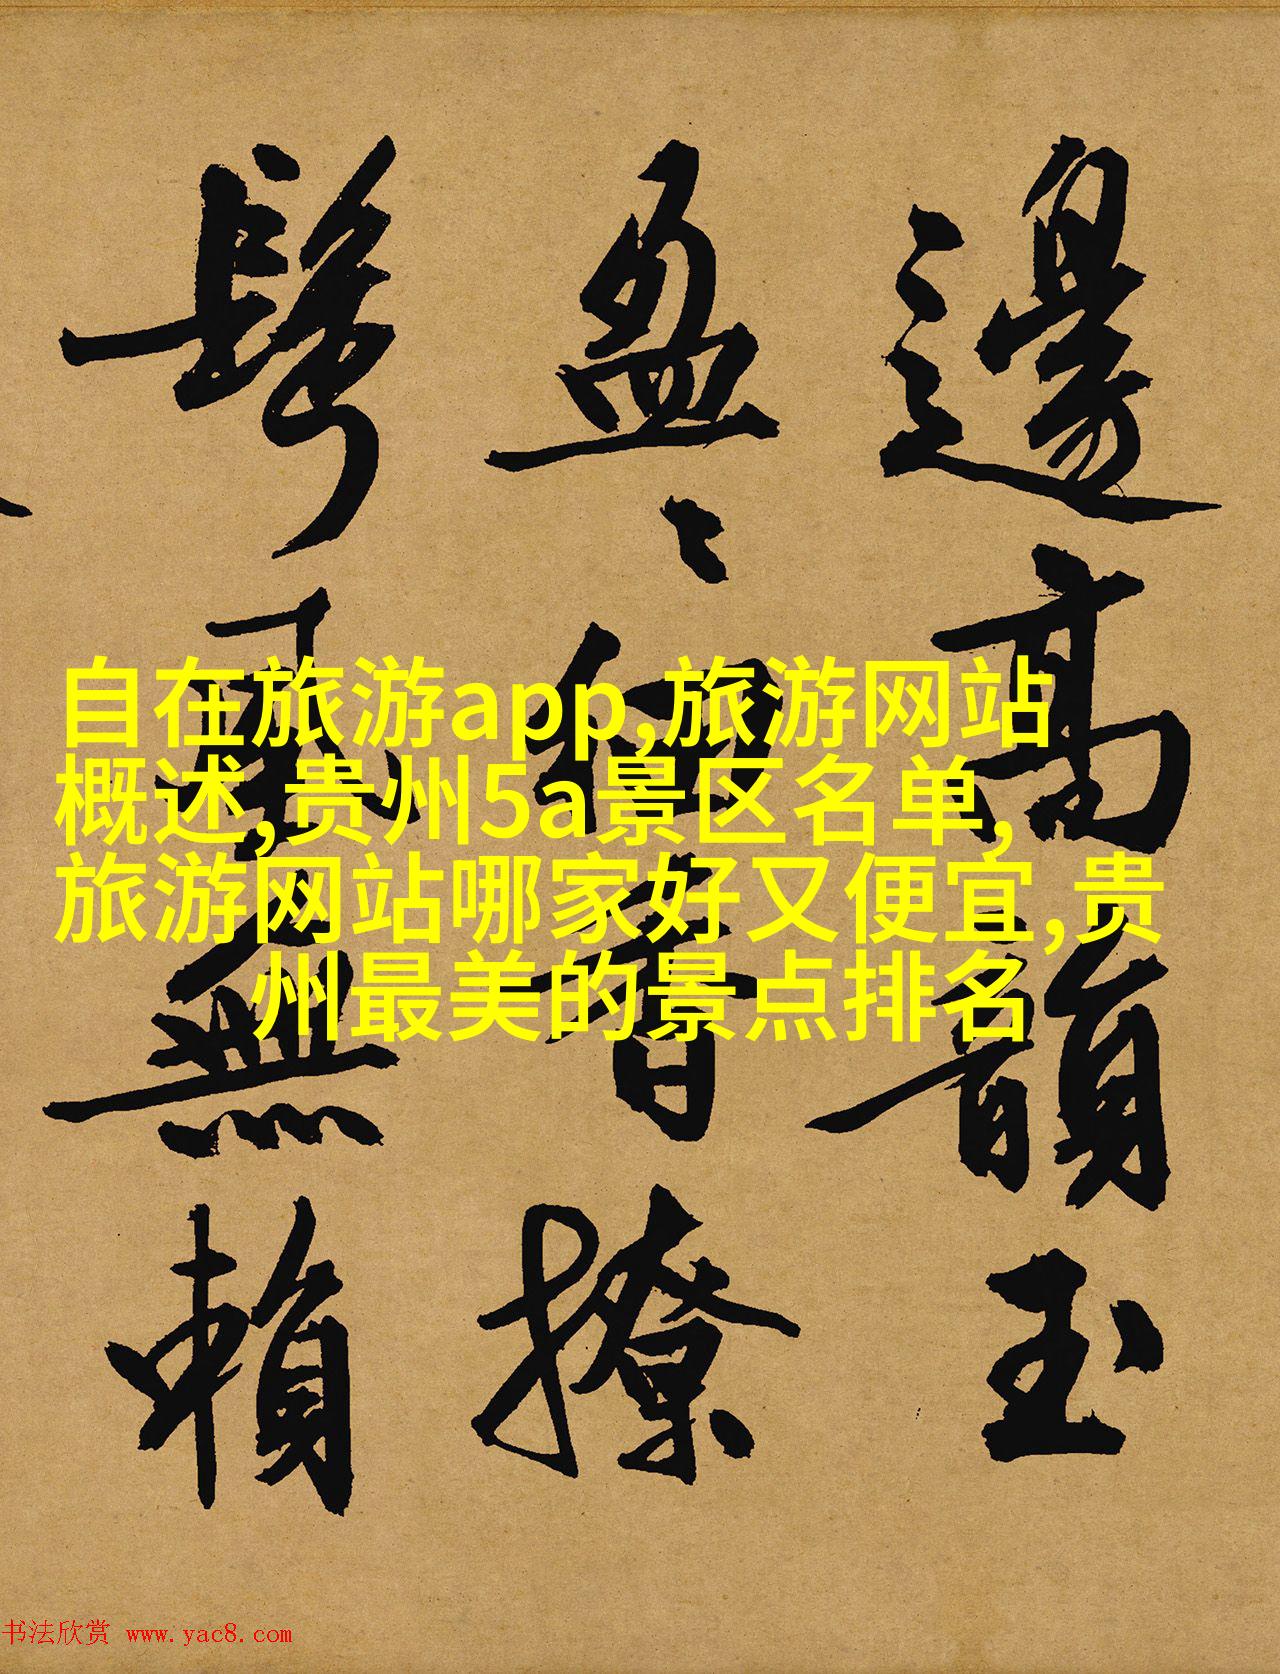 邊高韻玉
盈盈細香撩
鬢風無賴
自在旅游app,旅游网站
概述,贵州5a景区名单,
旅游网站哪家好又便宜,贵
州最美的景点排名
书法欣赏 www.yac8.com